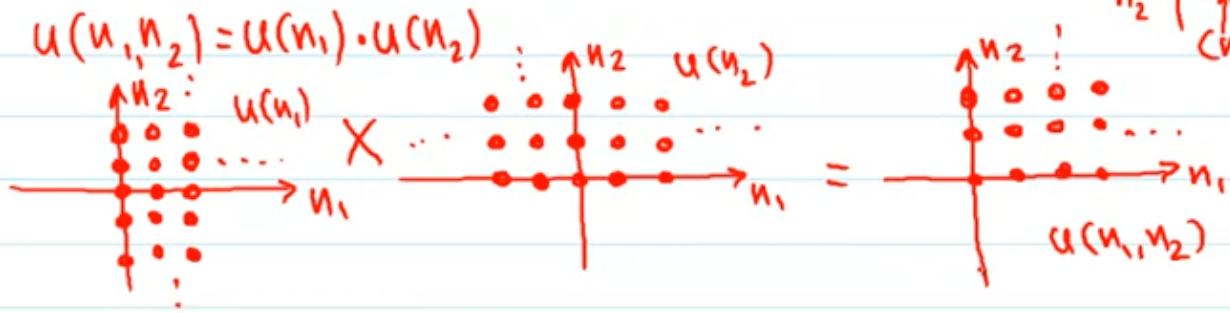 u(n₁,n₂)=u(n₁)·u(n₂)
n₂ u(n₁)
n₁
X
n₂ u(n₂)
n₁
=
n₂
n₁
u(n₁,n₂)
n₂